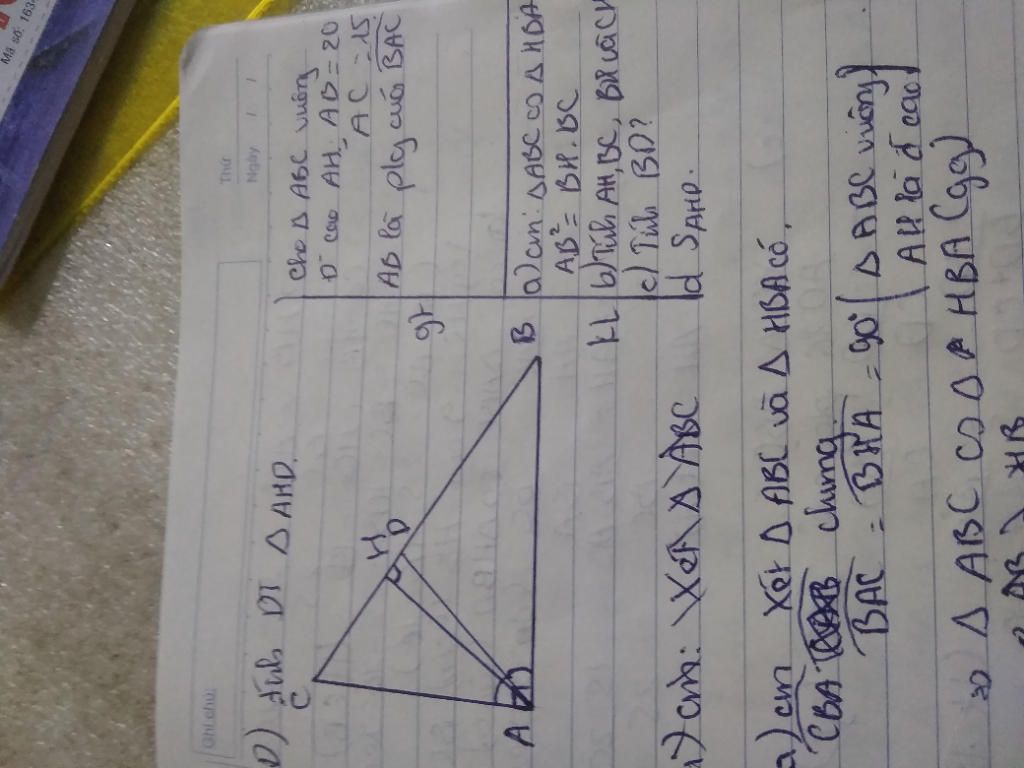 Mã số: 163
Thứ
Ngày / /
Ghi chú:
D) tính DT Δ AHD.
C
H
D
A
B
gt
Cho Δ ABC vuông
Đ cao AH, AB = 20
AC = 15
AB là plg của BAC
KL
a) cm: Δ ABC ∽ Δ HBA
AB² = BH. BC
b) Tính AH, BC, BH và CH
c) Tính BD?
d S AHD.
a) cm: Xét Δ ABC
a) cm Xét Δ ABC và Δ HBA có,
CBA chung
BAC = BHA = 90° ( Δ ABC vuông )
( AH là đ cao )
=> Δ ABC ∽ Δ HBA (gg)